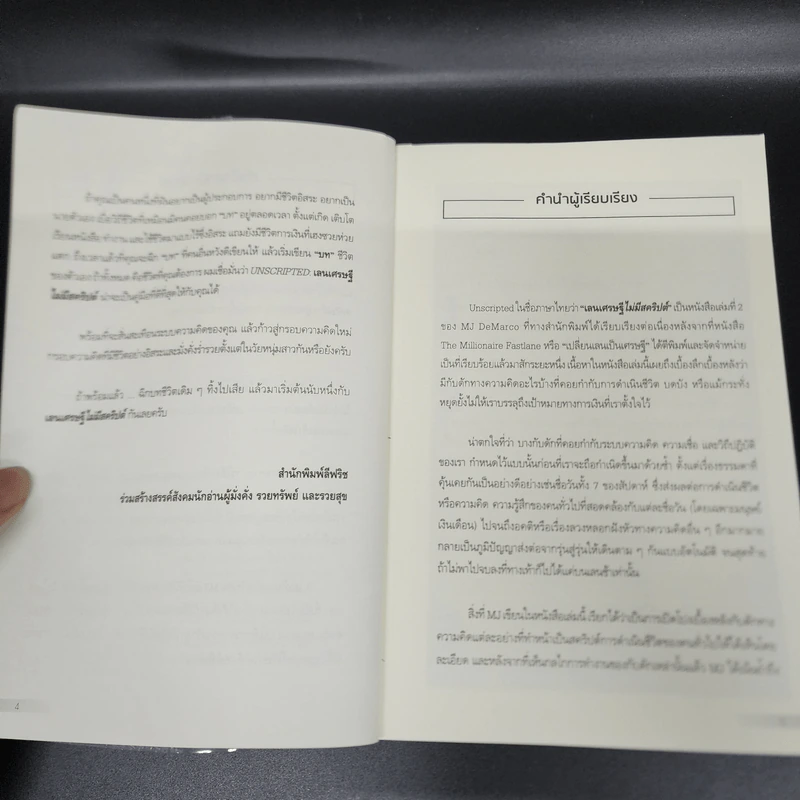 ถ้าคุณเป็นคนหนึ่งที่ฝันอยากเป็นผู้ประกอบการ อยากมีชีวิตอิสระ อยากเป็น
นายตัวเอง เมื่อวิถีชีวิตที่เหมือนมีคนคอยบอก “บท” อยู่ตลอดเวลา ตั้งแต่เกิด เติบโต
เรียนหนังสือ ทำงาน และใช้ชีวิตมาแบบไร้ซึ่งอิสระ แถมยังมีชีวิตการเงินที่เฮงซวยห่วย
แตก ถึงเวลาแล้วที่คุณจะฉีก “บท” ที่คนอื่นหวังดีเขียนให้ แล้วเริ่มเขียน “บท” ชีวิต
ของตัวเอง ถ้าทั้งหมด คือชีวิตที่คุณต้องการ ผมเชื่อมั่นว่า UNSCRIPTED: เลนเศรษฐี
ไม่มีสคริปต์ น่าจะเป็นคู่มือที่ดีที่สุดให้กับคุณได้
พร้อมที่จะสั่นสะเทือนระบบความคิดของคุณ แล้วก้าวสู่กรอบความคิดใหม่
การอบความคิดที่มีชีวิตอย่างอิสระและมั่งคั่งร่ำรวยตั้งแต่ในวัยหนุ่มสาวกันหรือยังครับ
ถ้าพร้อมแล้ว ... ฉีกบทชีวิตเดิม ๆ ทิ้งไปเสีย แล้วมาเริ่มต้นนับหนึ่งกับ
เลนเศรษฐี ไม่มีสคริปต์ กันเลยครับ
สำนักพิมพ์ลีฟริช
ร่วมสร้างสรรค์สังคมนักอ่านผู้มั่งคั่ง รวยทรัพย์ และรวยสุข
4
คำนำผู้เรียบเรียง
Unscripted ในชื่อภาษาไทยว่า “เลนเศรษฐี ไม่มีสคริปต์” เป็นหนังสือเล่มที่ 2
ของ MJ DeMarco ที่ทางสำนักพิมพ์ได้เรียบเรียงต่อเนื่องหลังจากที่หนังสือ
The Millionaire Fastlane หรือ “เปลี่ยนเลนเป็นเศรษฐี” ได้ตีพิมพ์และจัดจำหน่าย
เป็นที่เรียบร้อยแล้วมาสักระยะหนึ่ง เนื้อหาในหนังสือเล่มนี้เผยถึงเบื้องลึกเบื้องหลังว่า
มีกับดักทางความคิดอะไรบ้างที่คอยกำกับการดำเนินชีวิต บดบัง หรือแม้กระทั่ง
หยุดยั้งไม่ให้เราบรรลุถึงเป้าหมายทางการเงินที่เราตั้งใจไว้
น่าตกใจที่ว่า บางกับดักที่คอยกำกับระบบความคิด ความเชื่อ และวิธีปฏิบัติ
ของเรา กำหนดไว้แบบนั้นก่อนที่เราจะถือกำเนิดขึ้นมาด้วยซ้ำ ตั้งแต่เรื่องธรรมดาที่
คุ้นเคยกันเป็นอย่างดีอย่างเช่นชื่อวันทั้ง 7 ของสัปดาห์ ซึ่งส่งผลต่อการดำเนินชีวิต
หรือความคิด ความรู้สึกของคนทั่วไปที่สอดคล้องกับแต่ละชื่อวัน (โดยเฉพาะมนุษย์
เงินเดือน) ไปจนถึงอคติหรือเรื่องลวงหลอกฝังหัวทางความคิดอื่น ๆ อีกมากมาย
กลายเป็นภูมิปัญญาส่งต่อจากรุ่นสู่รุ่นให้เดินตาม ๆ กันแบบอัตโนมัติ จนสุดท้าย
ถ้าไม่พาไปจบลงที่ทางเท้าก็ไปได้แค่บนเลนช้าเท่านั้น
สิ่งที่ MJ เขียนในหนังสือเล่มนี้ เรียกได้ว่าเป็นการเปิดโปงเบื้องหลังกับดักทาง
ความคิดแต่ละอย่างที่ทำหน้าเป็นสคริปต์การดำเนินชีวิตของคนทั่วไปได้
ละเอียด และหลังจากที่เห็นกลไกการทำงานของกับดักเหล่านั้นแล้ว MJ